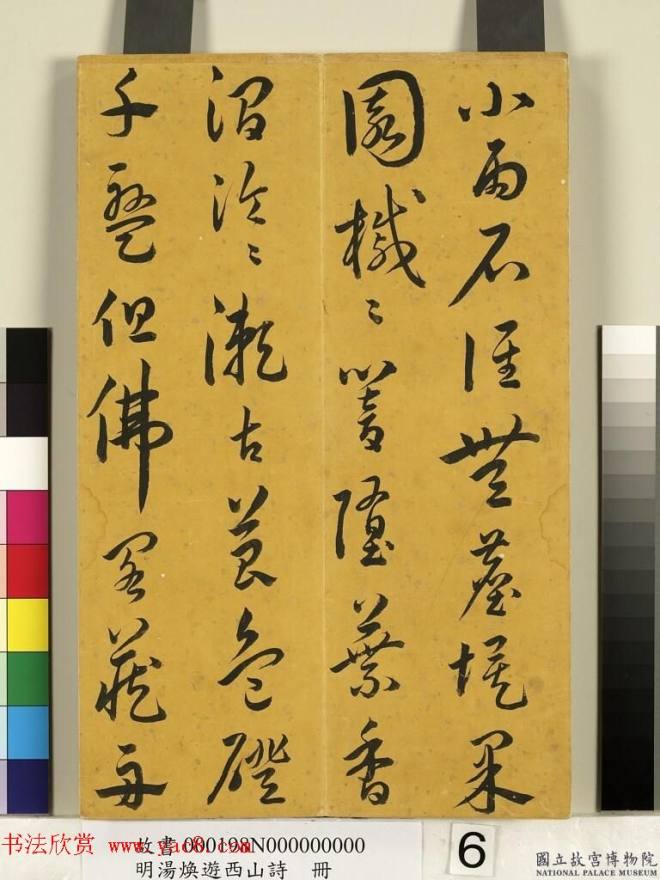 小雨石徑無塵埃果
園槭〻響墮葉香
澗泠〻漱古苔危磴
千盤但佛閣藏
书法欣赏
www.yac8.com
故書 000198N000000000
明湯煥遊西山詩 冊
6
國立故宮博物院
NATIONAL PALACE MUSEUM